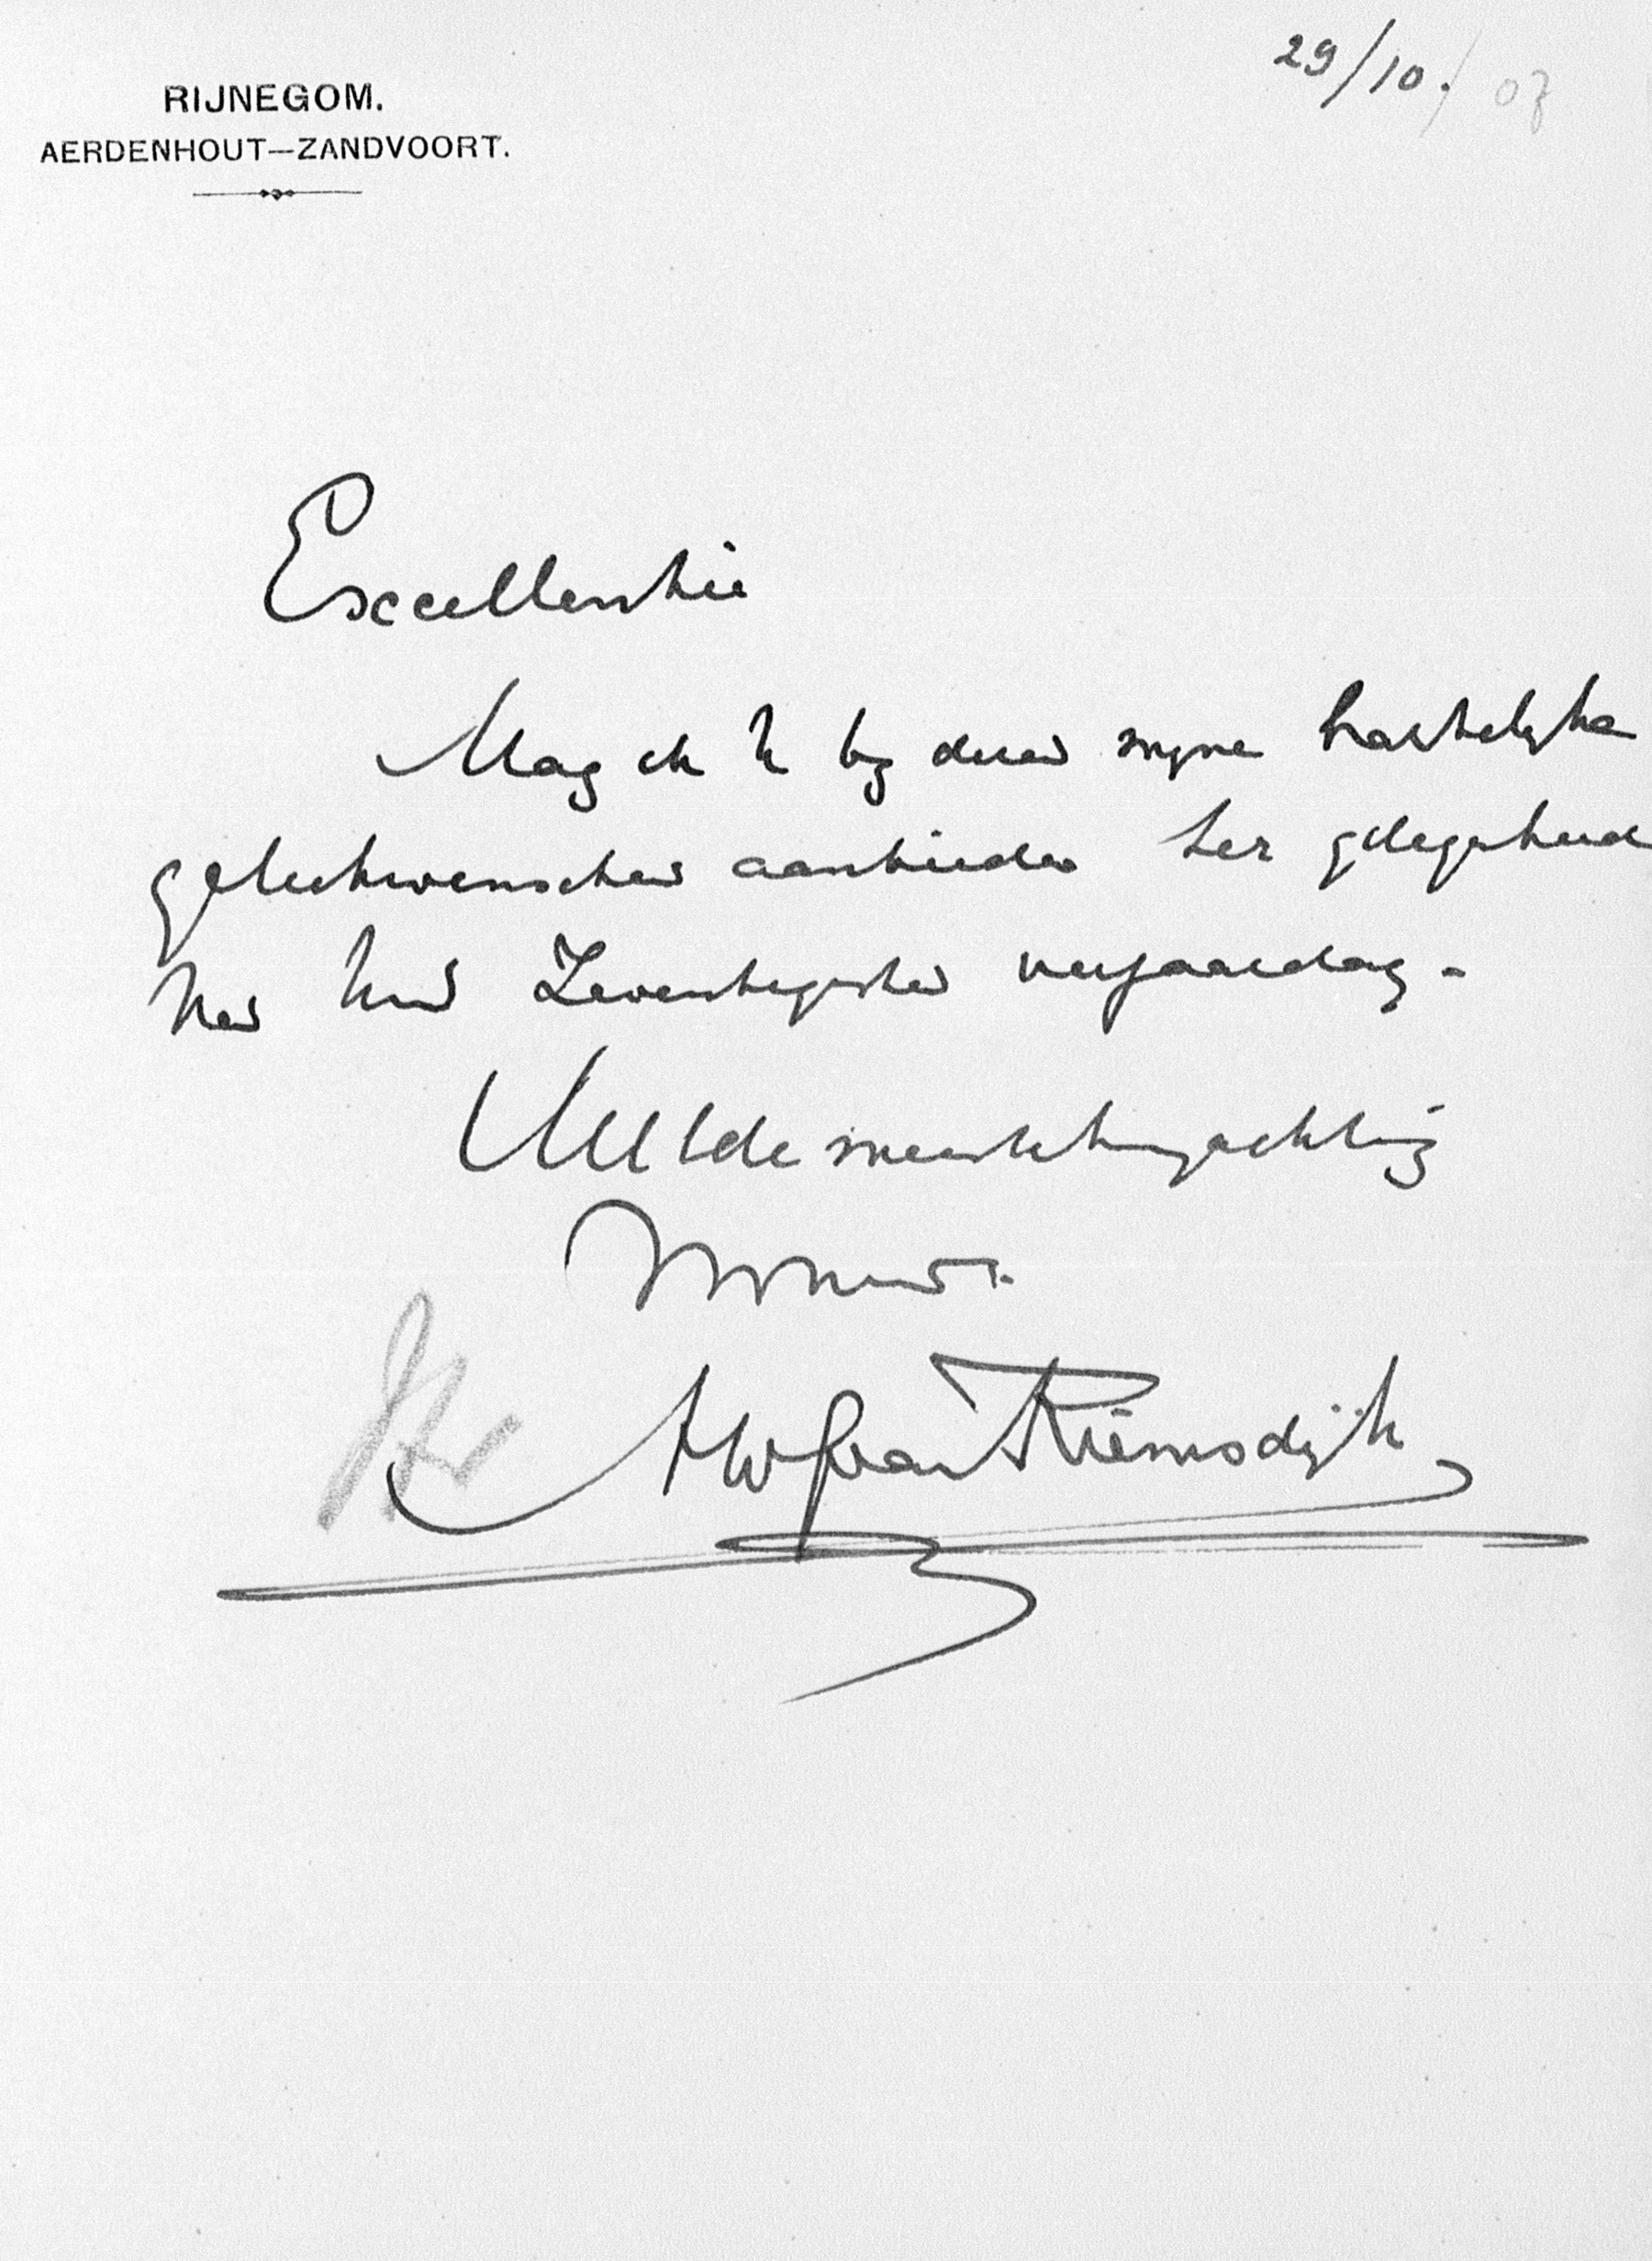 29/10./07
RIJNEGOM.
AERDENHOUT—ZANDVOORT.
Excellentie
Mag ik U by deze myne hartelyke
gelukwenschen aanbieden ter gelegenheid
van Uw Zeventigsten verjaardag -
met
AWG van Riemsdÿk